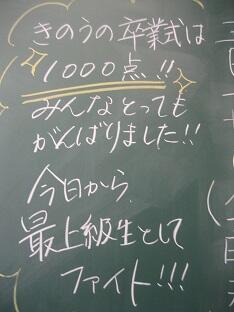 きのうの卒業式は
1000点!!
みんなとっても
がんばりました!!
今日から
最上級生として
ファイト!!!